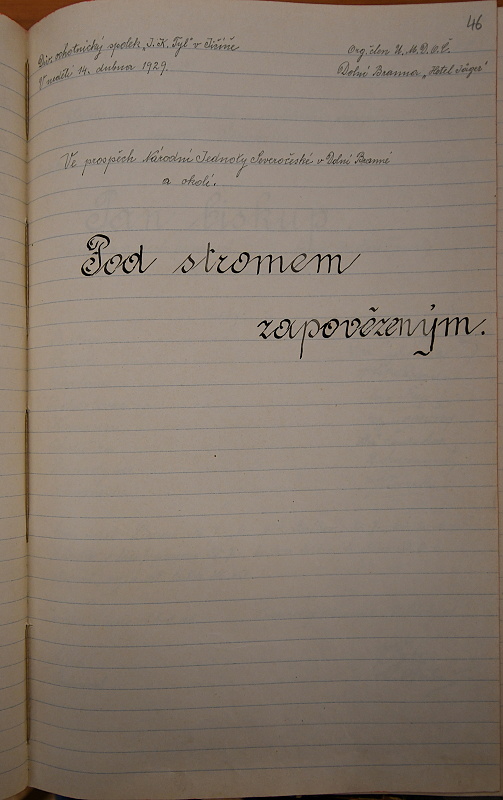 46
Div. ochotnický spolek „J. K. Tyl" v
Org. člen Ú. M. D. O. Č.
V neděli 14. dubna 1929.
Dolní Branná „Hotel Jäger"
Ve prospěch Národní Jednoty Severočeské v Dolní Branné
a okolí.
Pod stromem
zapovězeným.